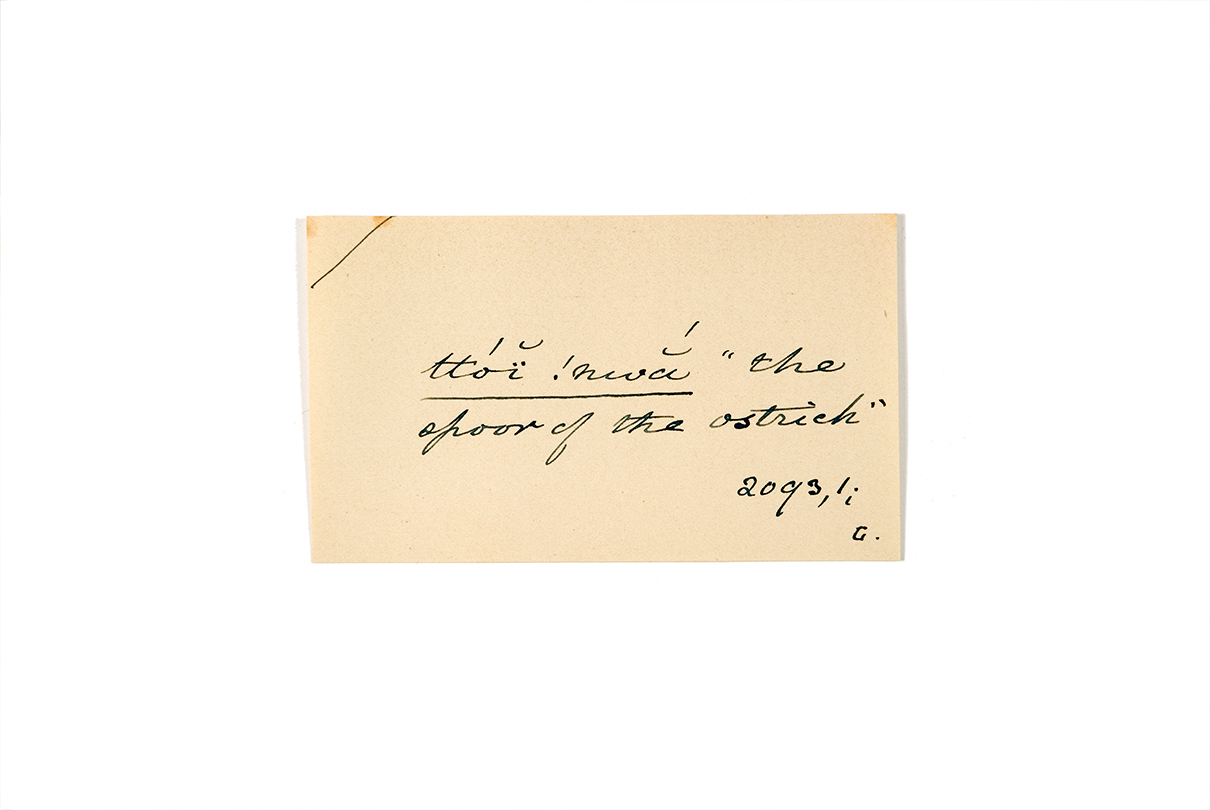 ttóĭ̈ !nwắ "the
spoor of the ostrich"
2093, 1;
G.